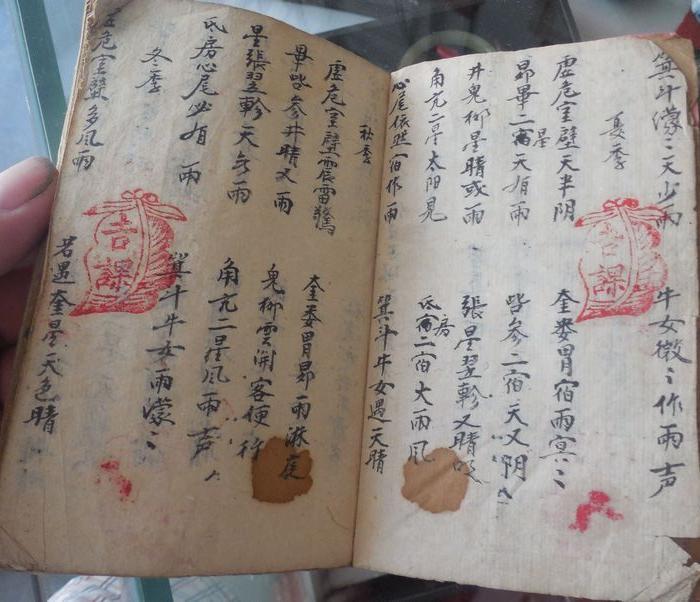 箕斗濛〻天少雨 牛女微〻作雨声
夏季
虚危室壁天半阴 奎娄胃宿雨冥〻
昴畢二宿星天有雨 觜参二宿天又阴
井鬼柳星晴或雨 張星翌軫又晴
角亢二星太阳見 氐房二宿大雨風
心尾依然宿作雨 箕斗牛女遇天晴
吉課
秋季
虚危室壁震雷驚 奎娄胃昴雨淋庭
畢觜参井晴又雨 鬼柳雲開客便行
星張翌軫天无雨 角亢二星風雨声
氐房心尾必有雨 箕斗牛女雨濛〻
冬季
虚危室壁多風雨 若遇奎星天色晴
吉課